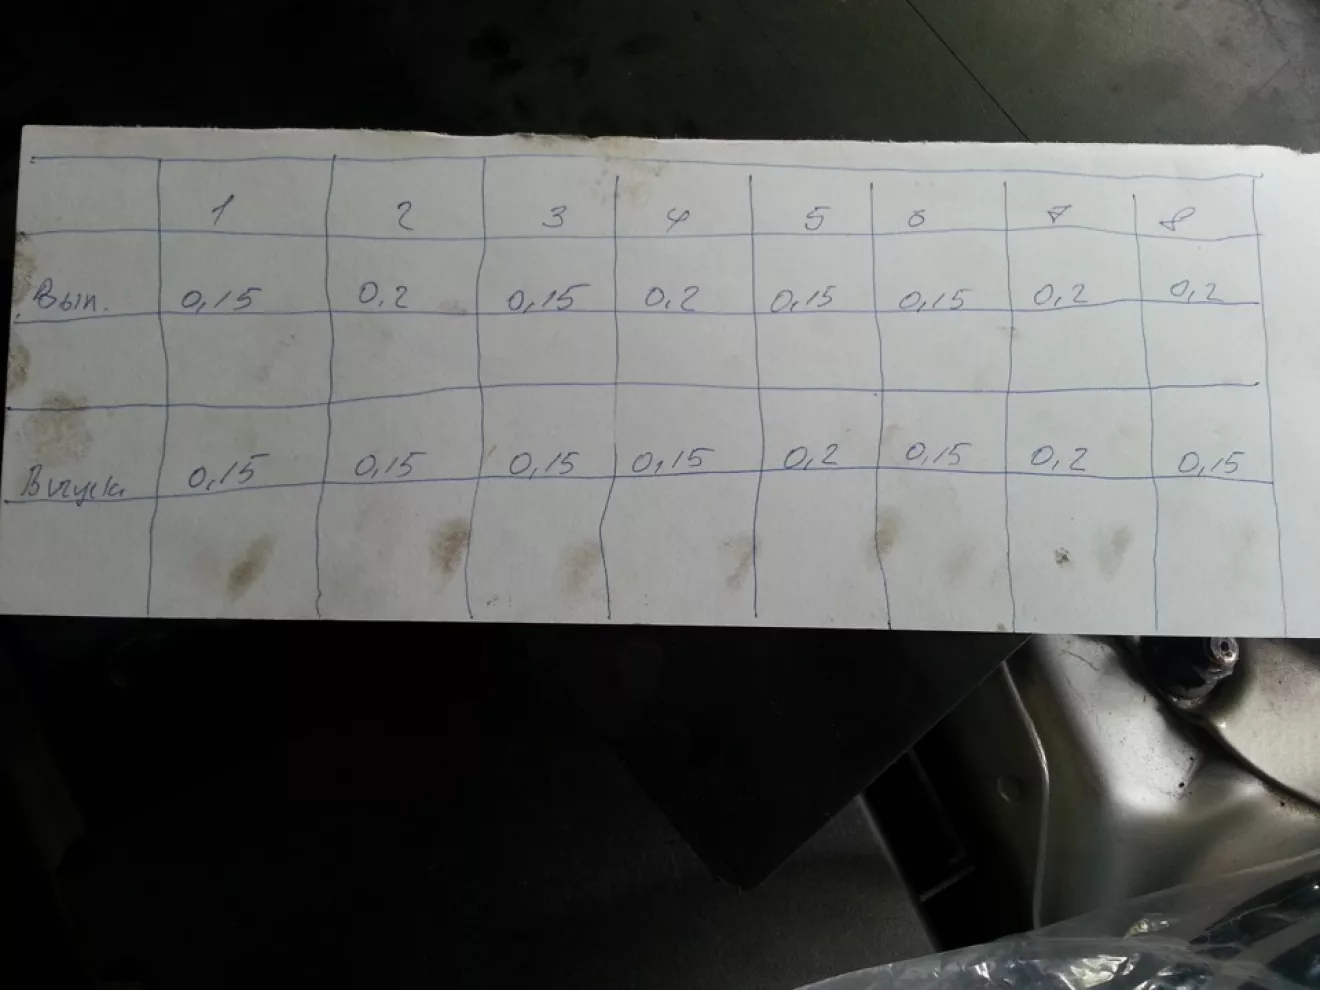 1 2 3 4 5 6 7 8
Вып. 0,15 0,2 0,15 0,2 0,15 0,15 0,2 0,2
0,15 0,15 0,15 0,15 0,2 0,15 0,2 0,15